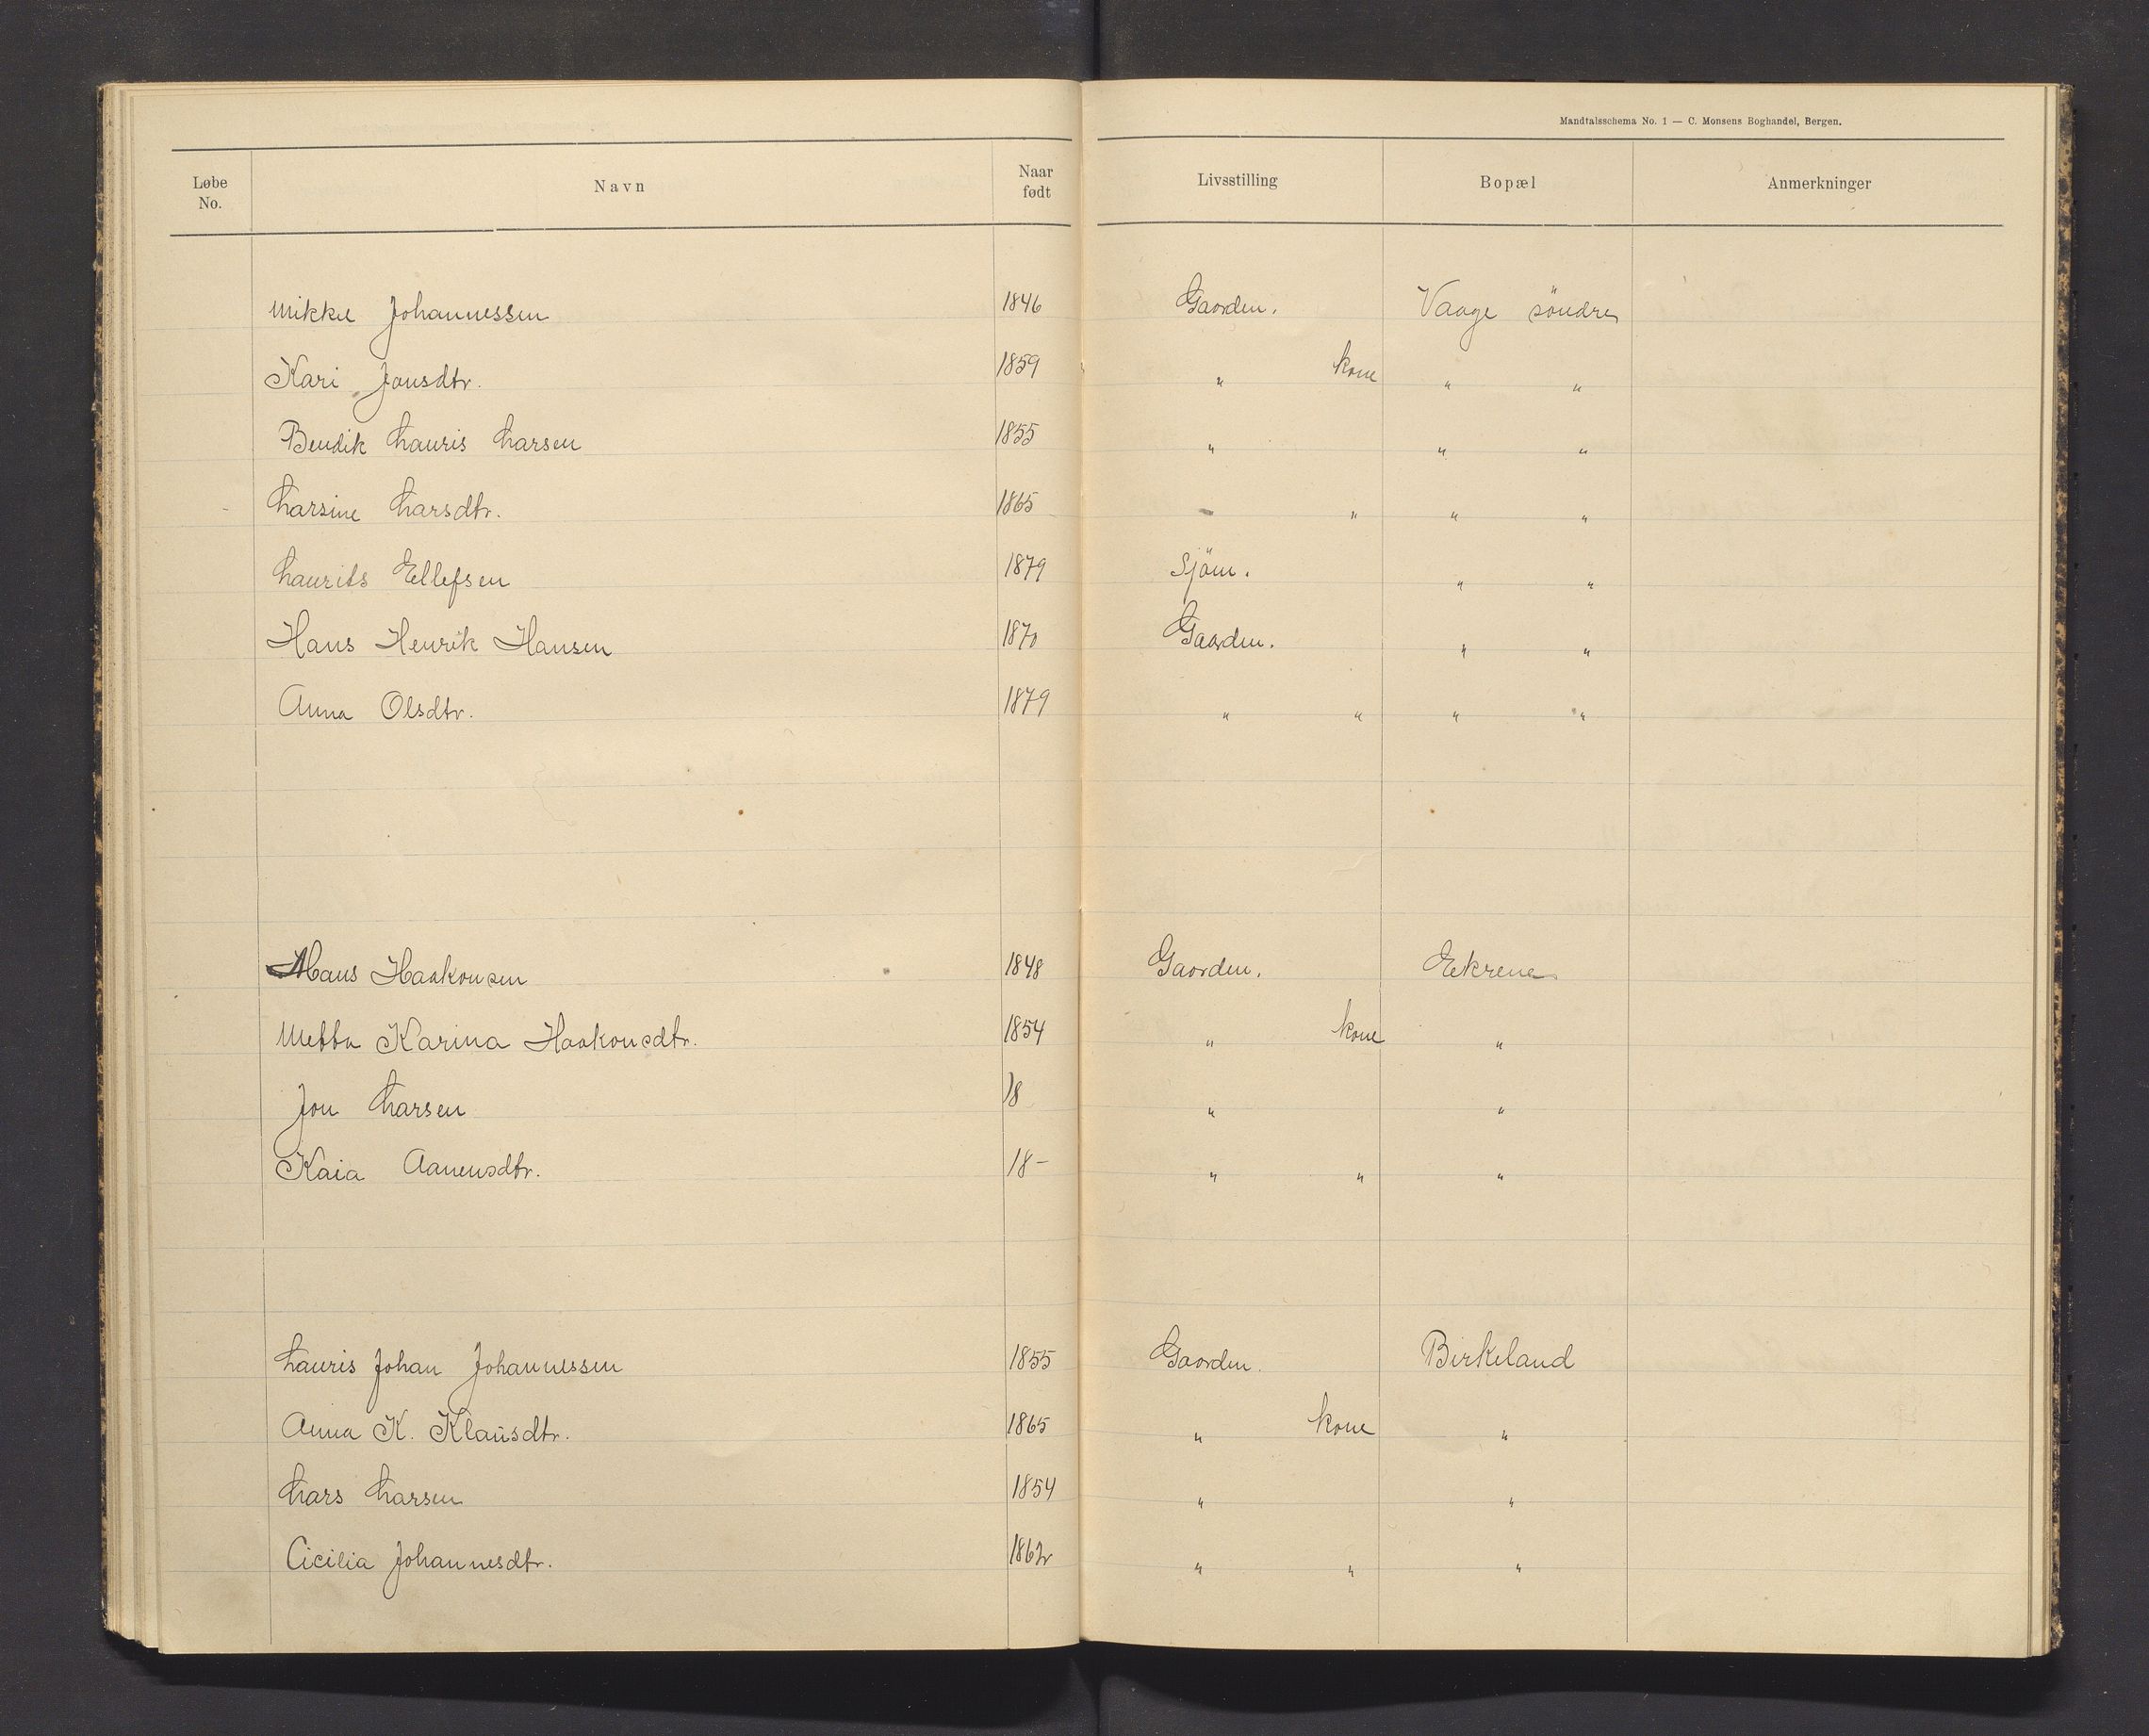 Mandtalsschema No. 1 — C. Monsens Boghandel, Bergen.
Løbe No. Navn Naar født Livsstilling Bopæl Anmerkninger
Mikkel Johannessen 1846 Gaarden. Vaage söndre
Kari Jonsdtr. 1859 " kone " "
Bendik Lauris Larsen 1855 " " "
Larsine Larsdtr. 1865 " " " "
Laurits Ellefsen 1879 Sjöm. " "
Hans Henrik Hansen 1870 Gaarden. " "
Anna Olsdtr. 1879 " " " "
Hans Haakonsen 1848 Gaarden. Eekrene
Metta Karina Haakonsdtr. 1854 " kone "
Jon Larsen 18 " "
Kaia Aanensdtr. 18- " " "
Lauris Johan Johannessen 1855 Gaarden. Birkeland
Anna K. Klausdtr. 1865 " kone "
Lars Larsen 1854 " "
Cicilia Johannesdtr. 1862 " " "